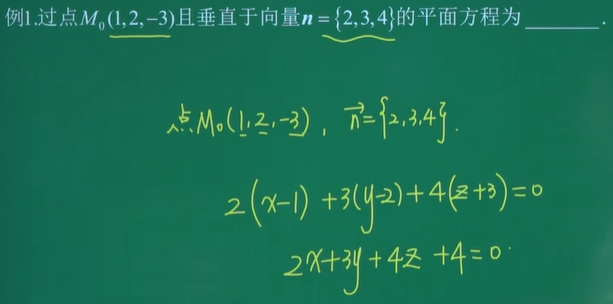 例1.过点M₀(1,2,−3)且垂直于向量n={2,3,4}的平面方程为______.
点M₀(1,2,-3), n⃗={2,3,4}.
2(x-1)+3(y-2)+4(z+3)=0
2x+3y+4z+4=0.